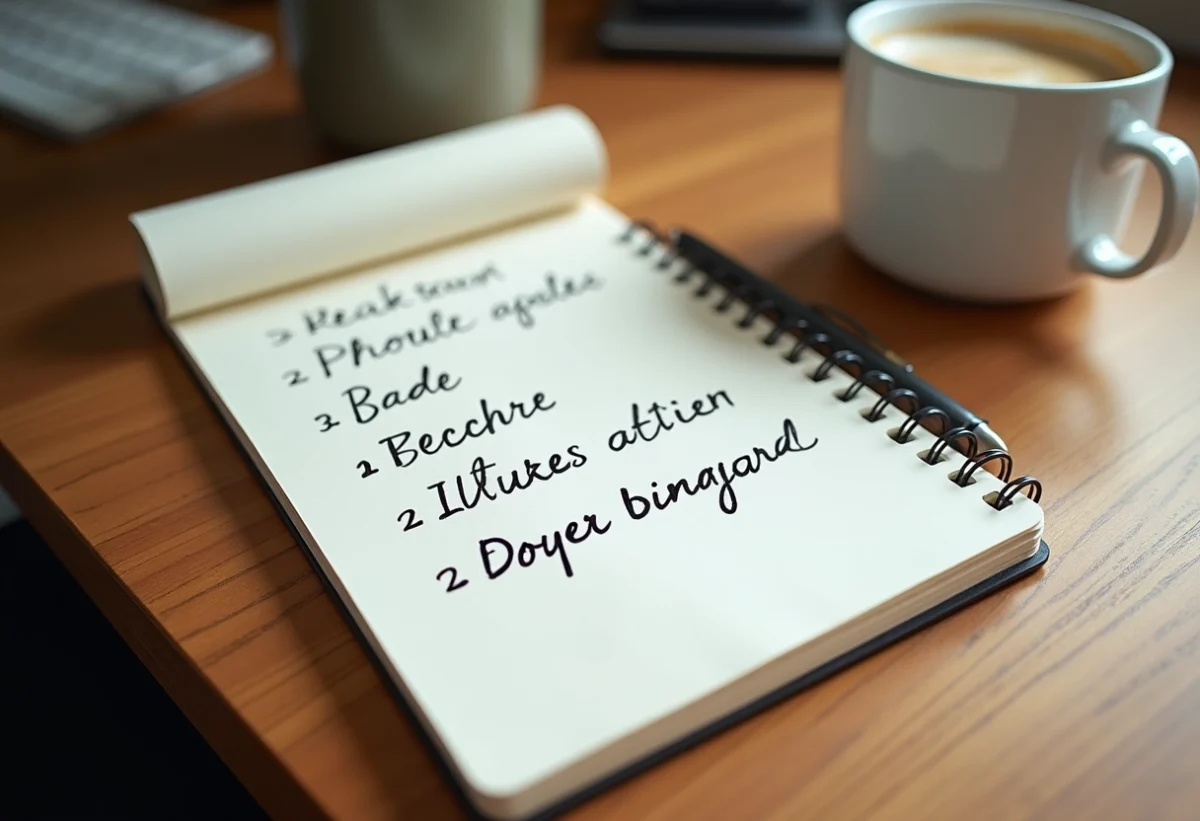 2 Phoule agales
3 Bade
2 Becchre
2 Iltuxes attien
2 Doyer binagard